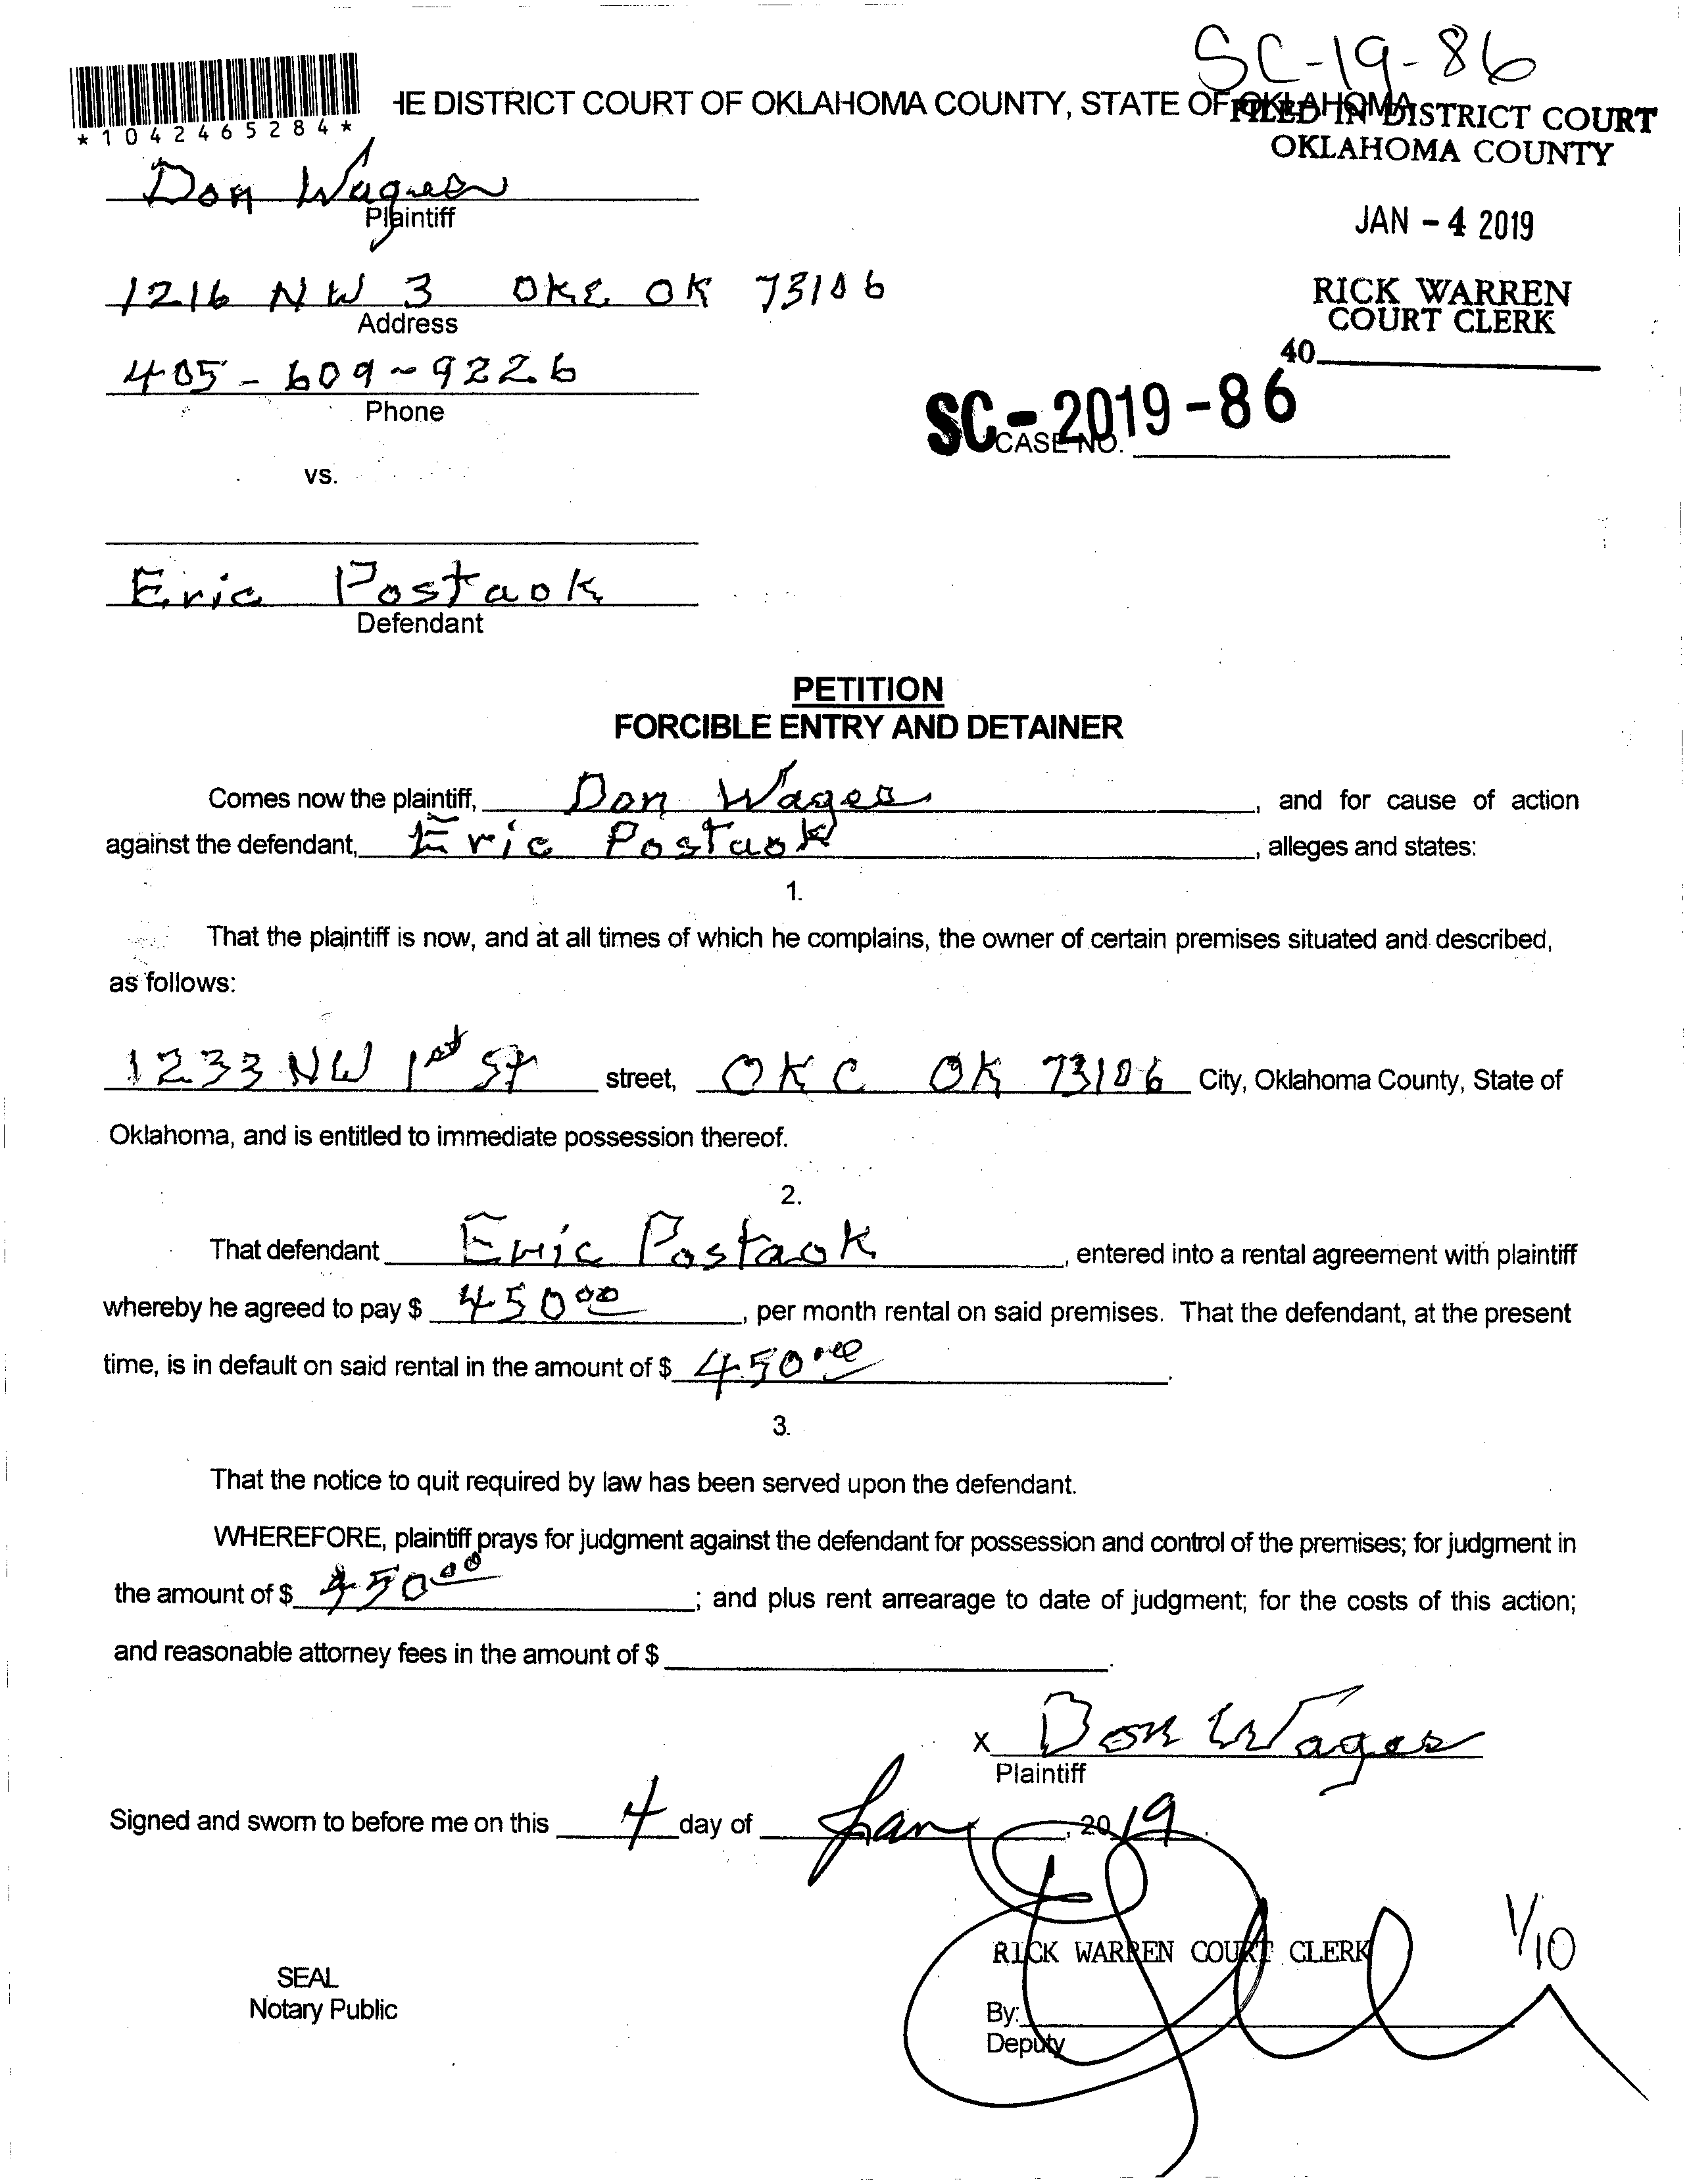 SC-19-86
*1042465284*
HE DISTRICT COURT OF OKLAHOMA COUNTY, STATE OF OKLAHOMA
FILED IN DISTRICT COURT
OKLAHOMA COUNTY
JAN - 4 2019
RICK WARREN
COURT CLERK
40
Don
Plaintiff
1216 NW 3 OKC OK 73106
Address
405-609-9226
Phone
SC-2019-86
CASE NO.
vs.
Eric Postaok
Defendant
PETITION
FORCIBLE ENTRY AND DETAINER
Comes now the plaintiff, Don Wages, and for cause of action
against the defendant, Eric Postaok, alleges and states:
1.
That the plaintiff is now, and at all times of which he complains, the owner of certain premises situated and described,
as follows:
1233 NW 1st St street, OKC OK 73106 City, Oklahoma County, State of
Oklahoma, and is entitled to immediate possession thereof.
2.
That defendant Eric Postaok, entered into a rental agreement with plaintiff
whereby he agreed to pay $ 450 00, per month rental on said premises. That the defendant, at the present
time, is in default on said rental in the amount of $ 450.00.
3.
That the notice to quit required by law has been served upon the defendant.
WHEREFORE, plaintiff prays for judgment against the defendant for possession and control of the premises; for judgment in
the amount of $ 450 00; and plus rent arrearage to date of judgment; for the costs of this action;
and reasonable attorney fees in the amount of $.
X Don Wages
Plaintiff
Signed and sworn to before me on this 4 day of Jan, 2019.
RICK WARREN COURT CLERK
1/10
SEAL
Notary Public
By:
Deputy